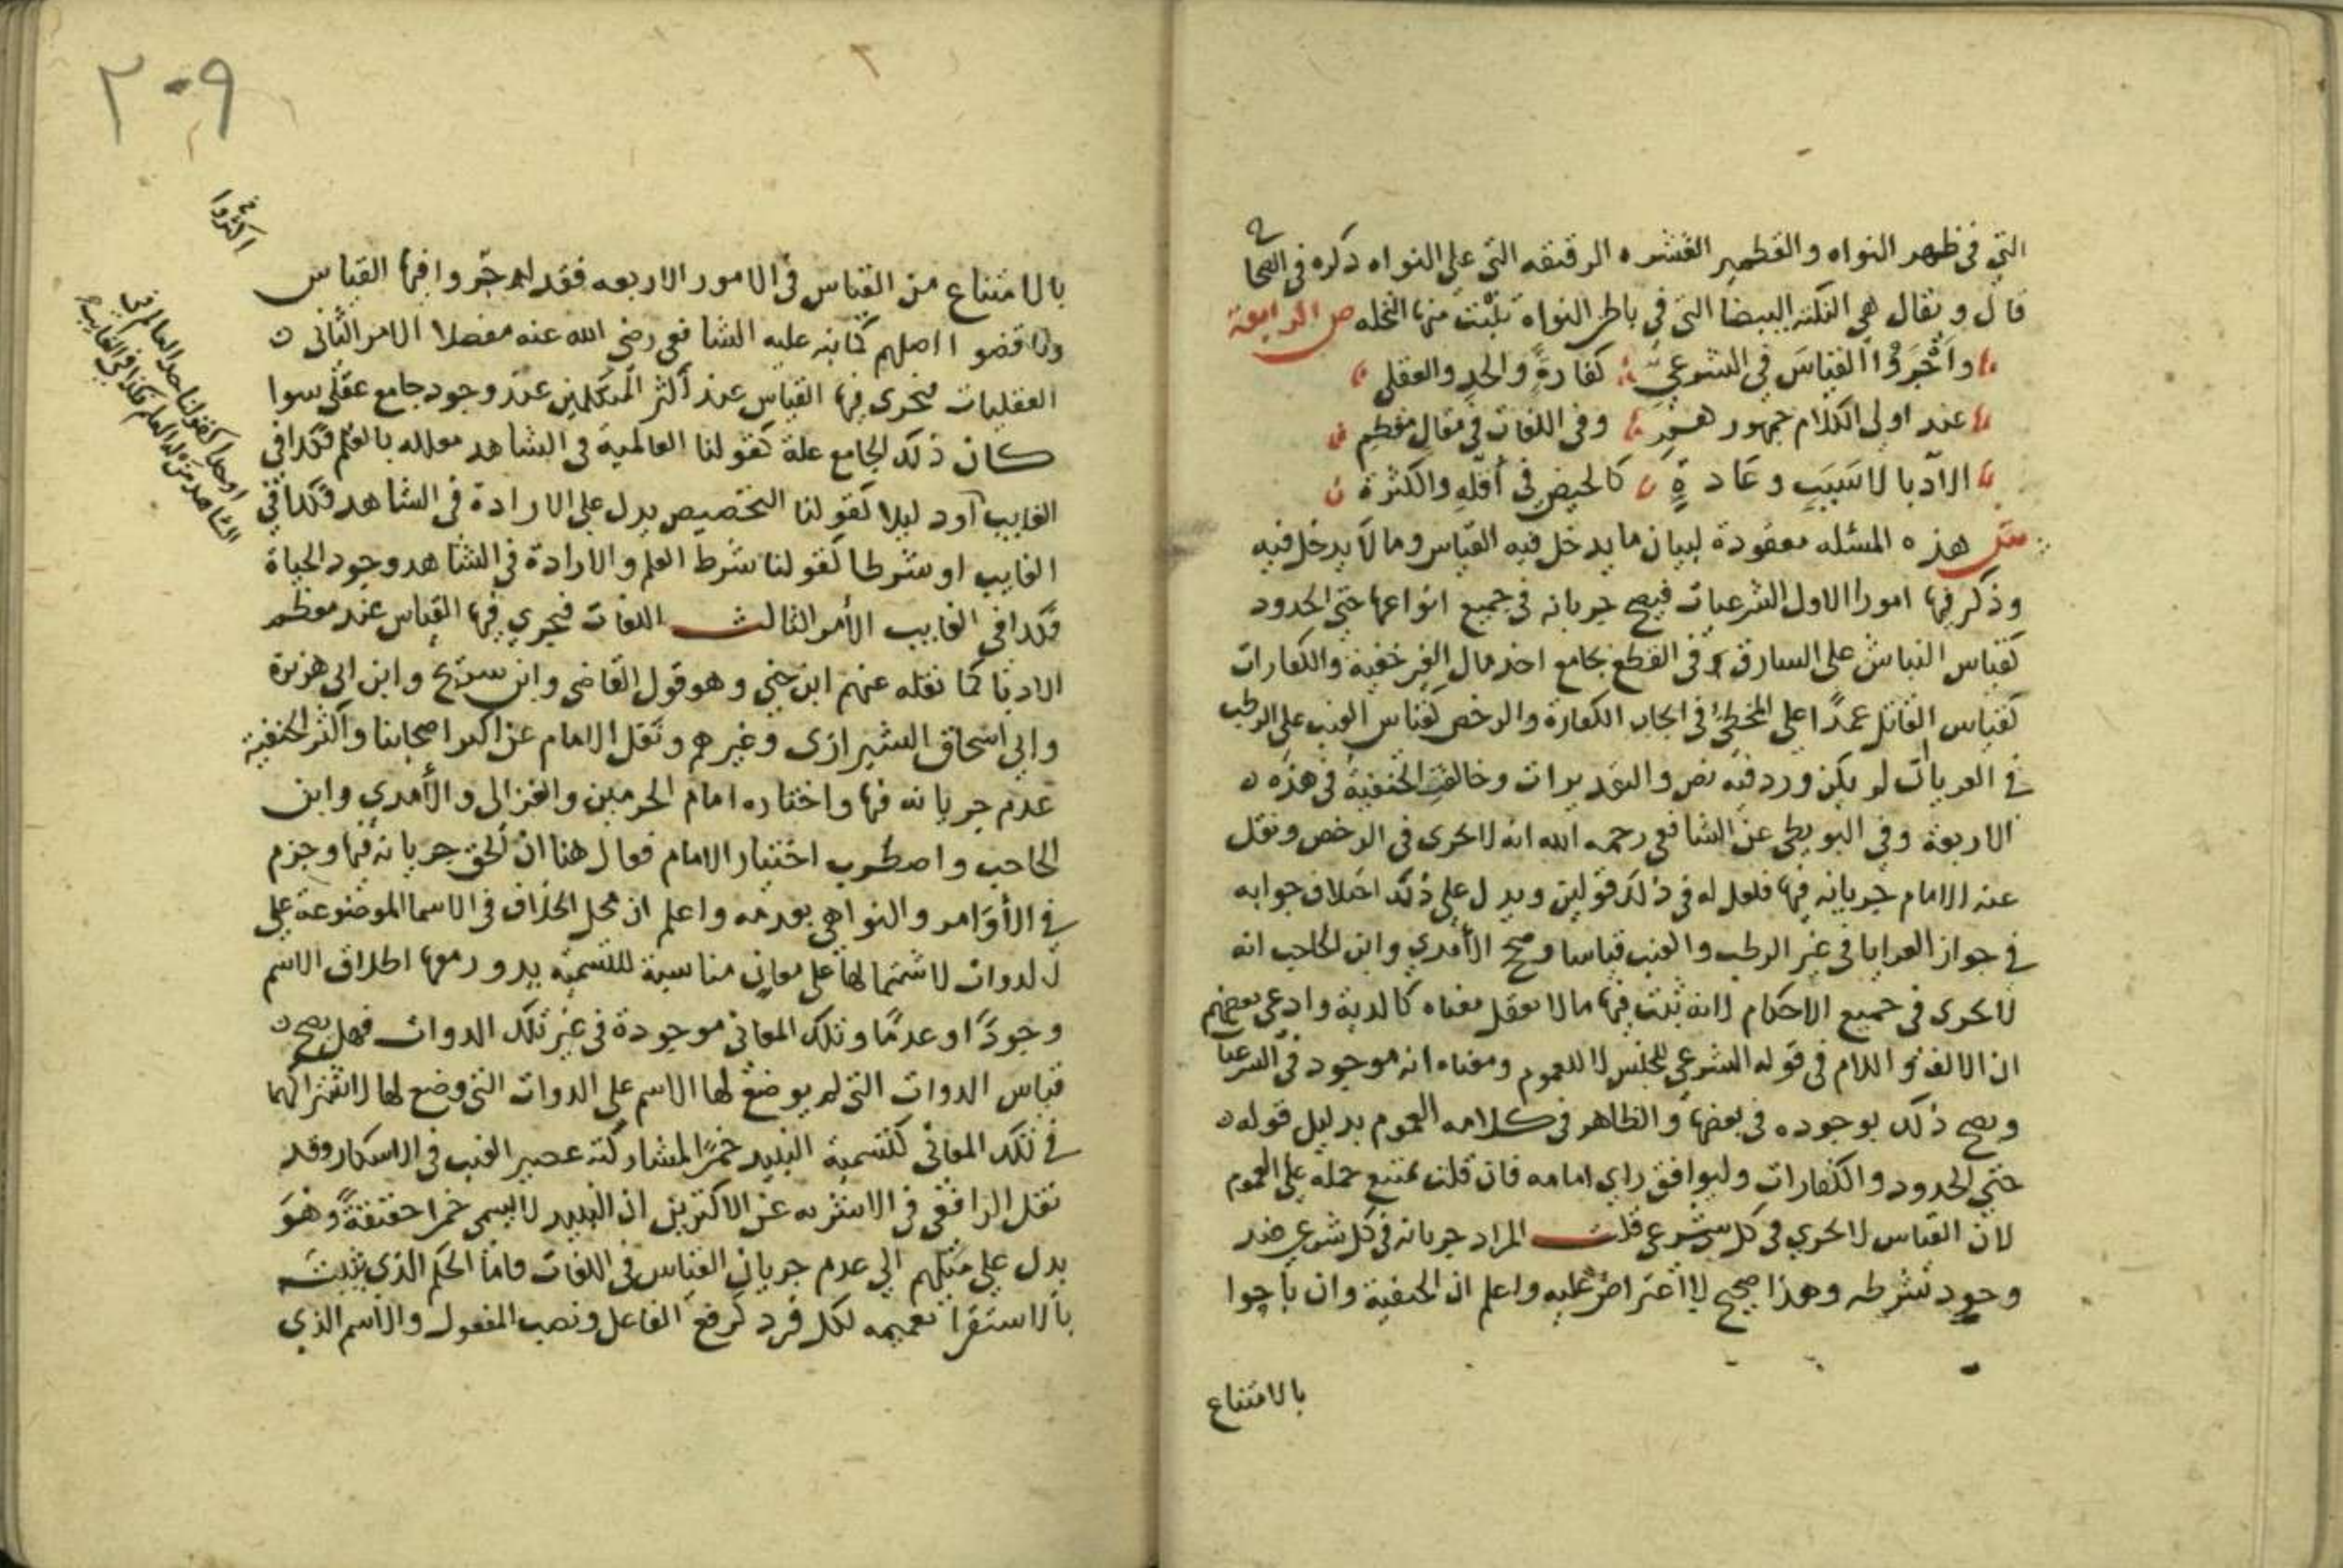 التي في ظهر النواه والقطمير القشره الرقيقه التي على النواه ذكره في الصحاح
قال ويقال هي النكته البيضا التي في باطن النواه تنبت منها النخله ص الرابعة
واَجْرَوْا القياسَ في الشرعيِّ كفارةٍ والحدِ والعقلي
عند اولى الكلام جمهور هم وفي اللغات في مقال معظم
الآدبا لا سَبَبٍ وعَادةٍ كالحيض في أقلّهِ والكثرة
ش هذه المسئله معقودة لبيان ما يدخل فيه القياس وما لا يدخل فيه
وذكر فيها امورا الاول الشرعيات فيصح جريانه في جميع انواعها حتى الحدود
كقياس النباش على السارق في القطع بجامع اخذ مال الغير خفية والكفارات
كقياس القاتل عمدًا على المخطئ في ايجاب الكفارة والرخص كقياس العنب على الرطب
في العريا ان لو يكن ورد فيه نص والتقديرات وخالفت الحنفية في هذه
الاربعة وفي البويطي عن الشافعي رحمه الله انه لا يجرى في الرخص ونقل
عنه الامام جريانه فيها فلعل له في ذلك قولين ويدل على ذلك اختلاف جوابه
في جواز العرايا في غير الرطب والعنب قياسا وصحح الآمدي وابن الحاجب انه
لا يجرى في جميع الاحكام لانه ثبت فيها ما لا يعقل معناه كالدية وادعى بعضهم
ان الالف واللام في قوله الشرعي للجنس لا للعموم ومعناه انه موجود في الشرعيا
ويصح ذلك بوجوده في بعضها والظاهر في كلامه العموم بدليل قوله
حتى الحدود والكفارات وليوافق راي امامه فان قلت يمتنع حمله على العموم
لان القياس لا يجري في كل شرعي قلت المراد جريانه في كل شرعي عند
وجود شرطه وهذا صحيح لا اعتراض عليه واعلم ان الحنفية وان باحوا
بالامتناع
٢٠٩
بالامتناع من القياس في الامور الاربعه فقد لهم جّروا فيها القياس
وناقضوا اصلهم كما نبه عليه الشافعي رضي الله عنه مفصلا الامر الثاني
العقليات فيجرى فيها القياس عند أكثر المتكلمين عند وجود جامع عقلى سوا
كان ذلك الجامع علة كقولنا العالمية في الشاهد معلله بالعلم فكذا في
الغايب او دليلا كقولنا التخصيص يدل على الارادة في الشاهد فكذا في
الغايب او شرطا كقولنا شرط العلم والارادة في الشاهد وجود الحياة
فكذا في الغايب الأمر الثالث اللغات فيجري فيها القياس عند معظم
الادبا كما نقله عنهم ابن جني وهو قول القاضي وابن سريج وابن ابي هريرة
وابي اسحاق الشيرازى وغيرهم ونقل الامام عن اكثر اصحابنا وأكثر الحنفية
عدم جريانه فيها واختاره امام الحرمين والغزالي والآمدي وابن
الحاجب واضطرب اختيار الامام فقال هنا ان الحق جريانه فيها وجزم
في الأوَامر والنواهي بعدمه واعلم ان محل الخلاف في الاسما الموضوعة على
الدوات لاشتمالها على معانٍ مناسبة للتسمية يدور معها اطلاق الاسم
وجودًا وعدمًا وتلك المعاني موجودة في غير تلك الدوات فهل يصح
قياس الدوات التي لم يوضع لها الاسم على الدوات التي وضع لها لاشتراكهما
في تلك المعاني كتسمية النبيد خمرًا لمشاركته عصير العنب في الاسكار وقد
نقل الرافعي في الاشربه عن الاكثرين ان النبيد لا يسمى خمرا حقيقةً وهو
يدل على مَيْلهم الي عدم جريان القياس في اللغات واما الحكم الذي يثبت
بالاستقرا تعميمه لكل فرد كرفع الفاعل ونصب المفعول والاسم الذي
اكثروا
او حدا كقولنا حد العالم في
الشاهد من له العلم فكذا في الغايب